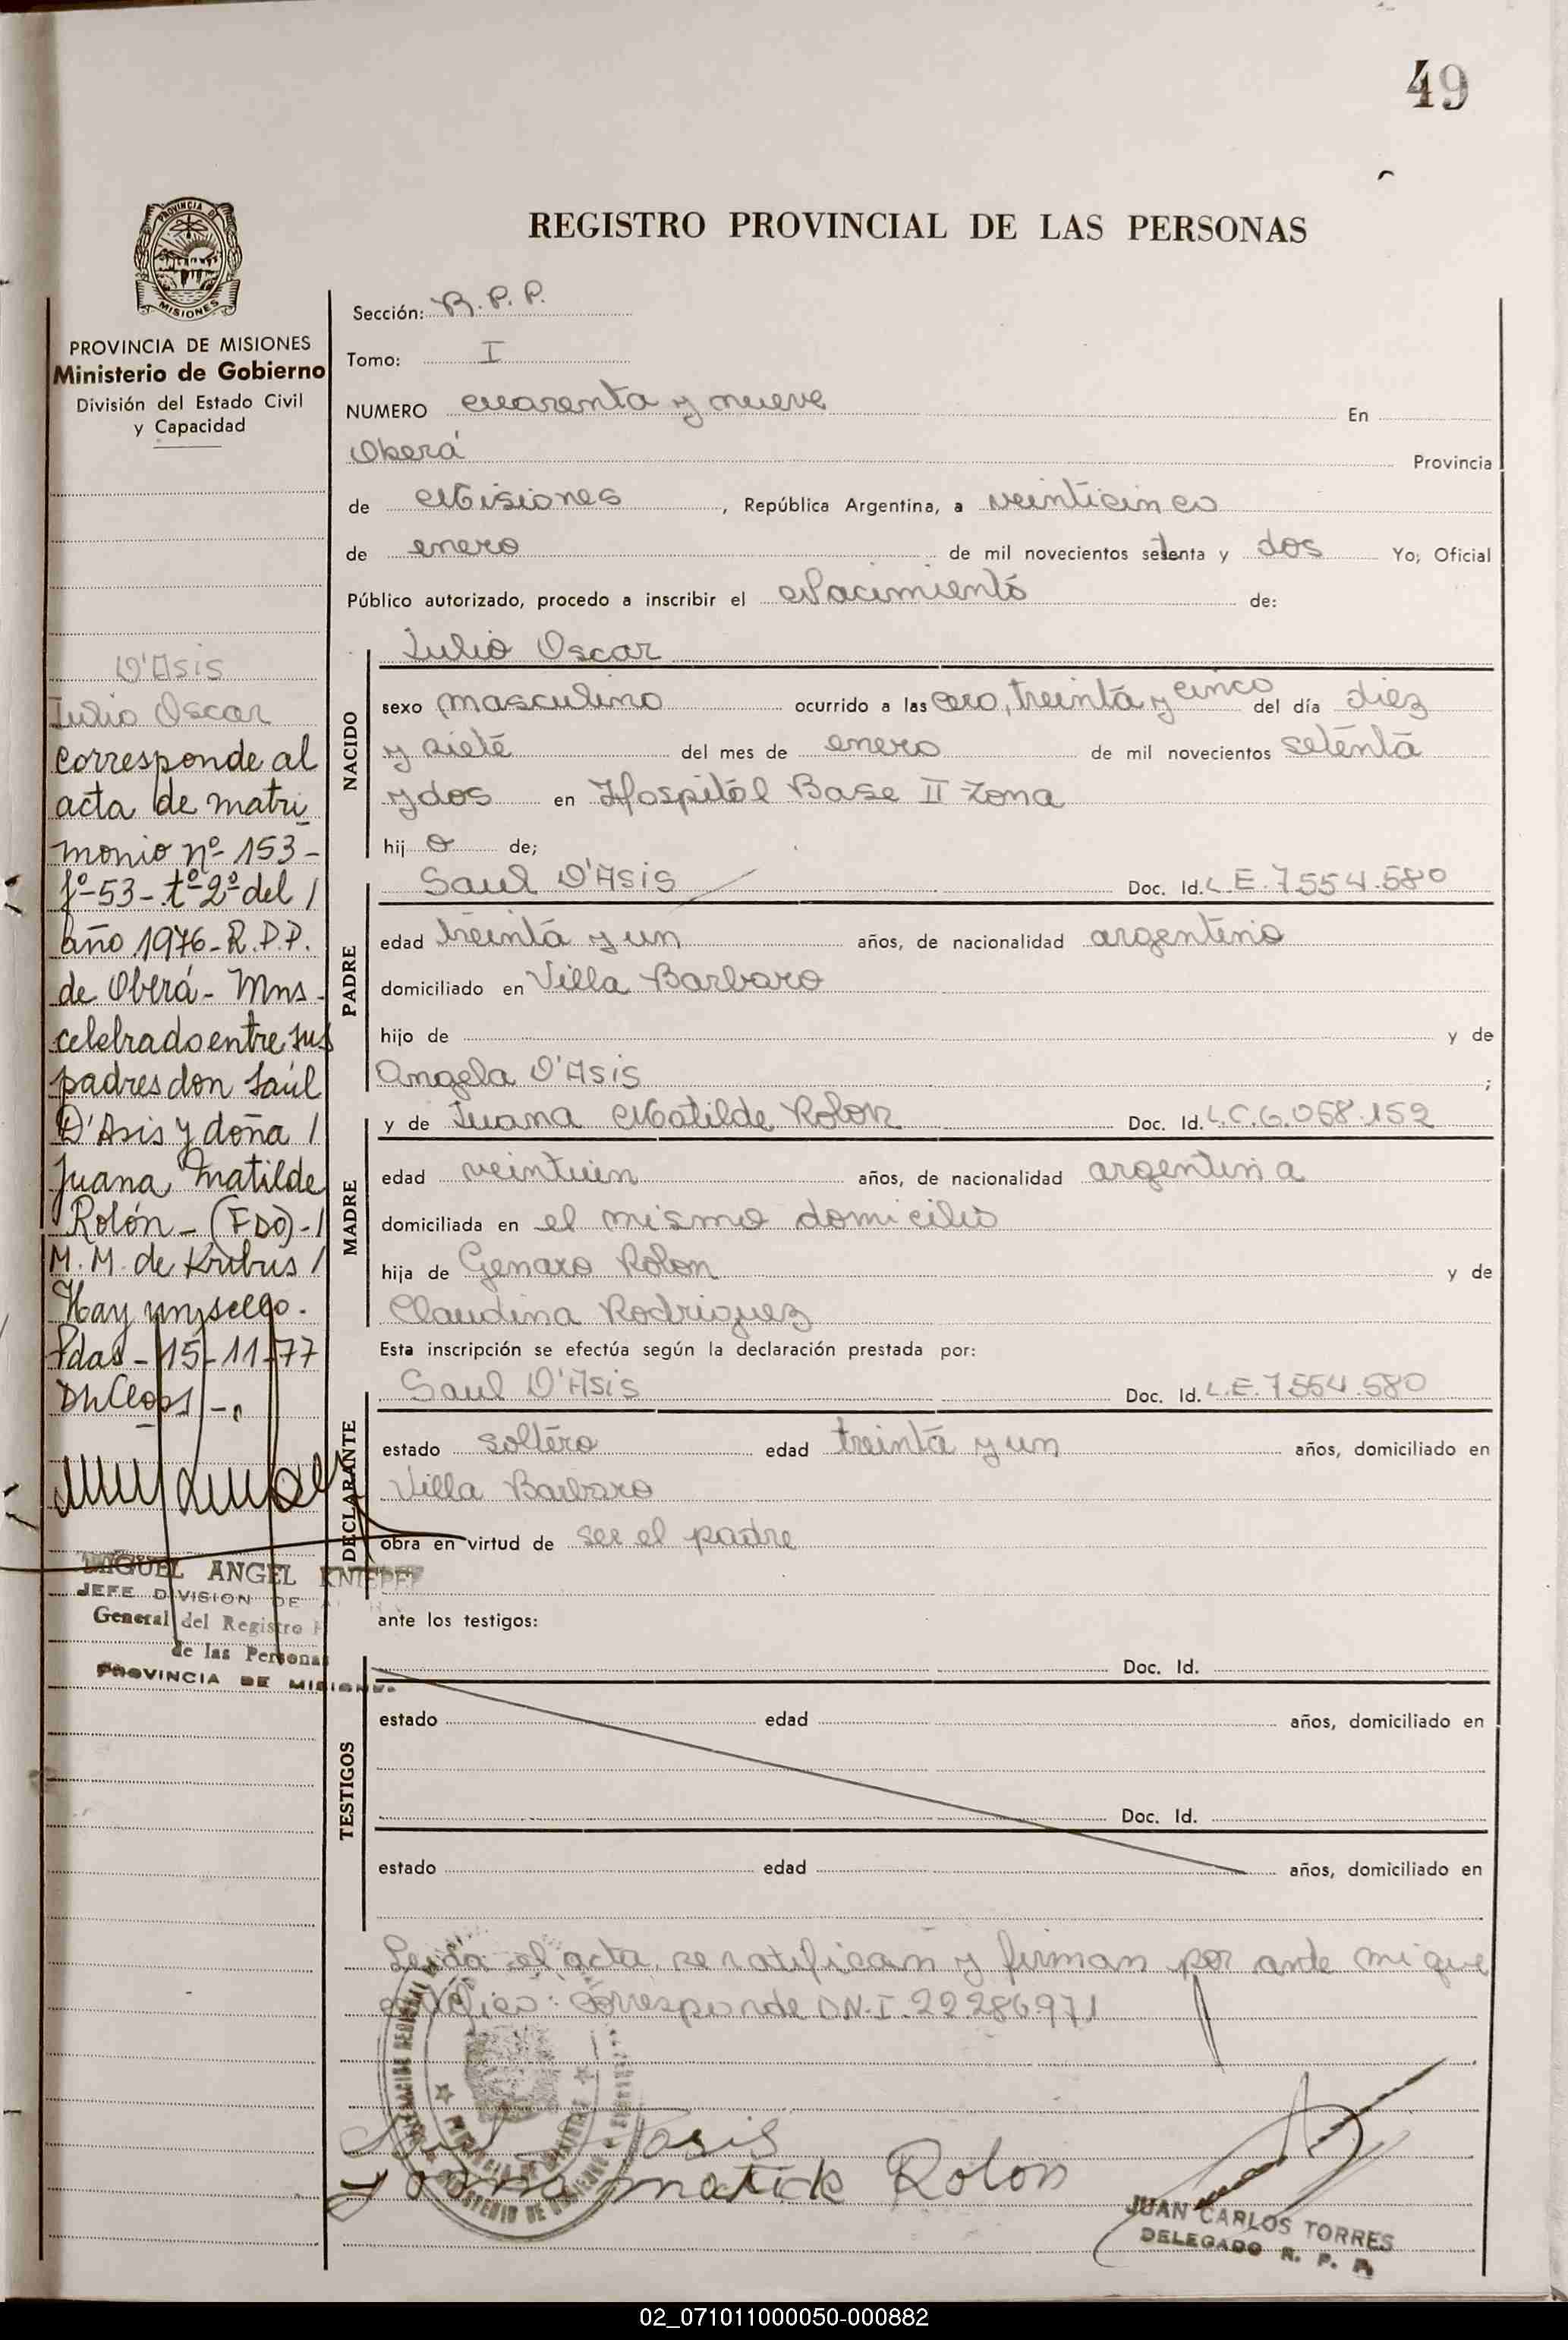 49
REGISTRO PROVINCIAL DE LAS PERSONAS
PROVINCIA DE
MISIONES
PROVINCIA DE MISIONES
Ministerio de Gobierno
División del Estado Civil
y Capacidad
D'Asis
Julio Oscar
corresponde al
acta de matri
monio nº 153-
fº-53-tº-2º del /
año 1976-R.P.P.
de Oberá- Mns-
celebrado entre sus
padres don Saúl
D'Asis y doña /
Juana Matilde
Rolón-(FDO)-/
M.M. de Kribus /
Hay un sello.
Pdas-15-11-77
MIGUEL ANGEL
JEFE DIVISION DE
General del Registro
de las Personas
PROVINCIA DE MISIONES
Sección: R.P.P.
Tomo: I
NUMERO cuarenta y nueve En
Oberá Provincia
de Misiones, República Argentina, a veinticinco
de enero de mil novecientos setenta y dos Yo; Oficial
Público autorizado, procedo a inscribir el Nacimiento de:
NACIDO
Julio Oscar
sexo masculino ocurrido a las cero, treinta y cinco del día diez
y siete del mes de enero de mil novecientos setenta
y dos en Hospital Base II Zona
hijo de;
PADRE
Saul D'Asis Doc. Id. L.E. 7.554.580
edad treinta y un años, de nacionalidad argentino
domiciliado en Villa Barbaro
hijo de y de
Angela D'Asis ;
MADRE
y de Juana Matilde Rolon Doc. Id. L.C.6.068.152
edad veintiun años, de nacionalidad argentina
domiciliada en el mismo domicilio
hija de Genaro Rolon y de
Claudina Rodriguez
Esta inscripción se efectúa según la declaración prestada por:
DECLARANTE
Saul D'Asis Doc. Id. L.E.7.554.580
estado soltero edad treinta y un años, domiciliado en
Villa Barbaro
obra en virtud de ser el padre
ante los testigos:
TESTIGOS
Doc. Id.
estado edad años, domiciliado en
Doc. Id.
estado edad años, domiciliado en
Leida el acta, se ratifican y firman por ante mi que
Corresponde D.N.I. 22.286.971
Rolon
JUAN CARLOS TORRES
DELEGADO R. P. P.
02_071011000050-000882